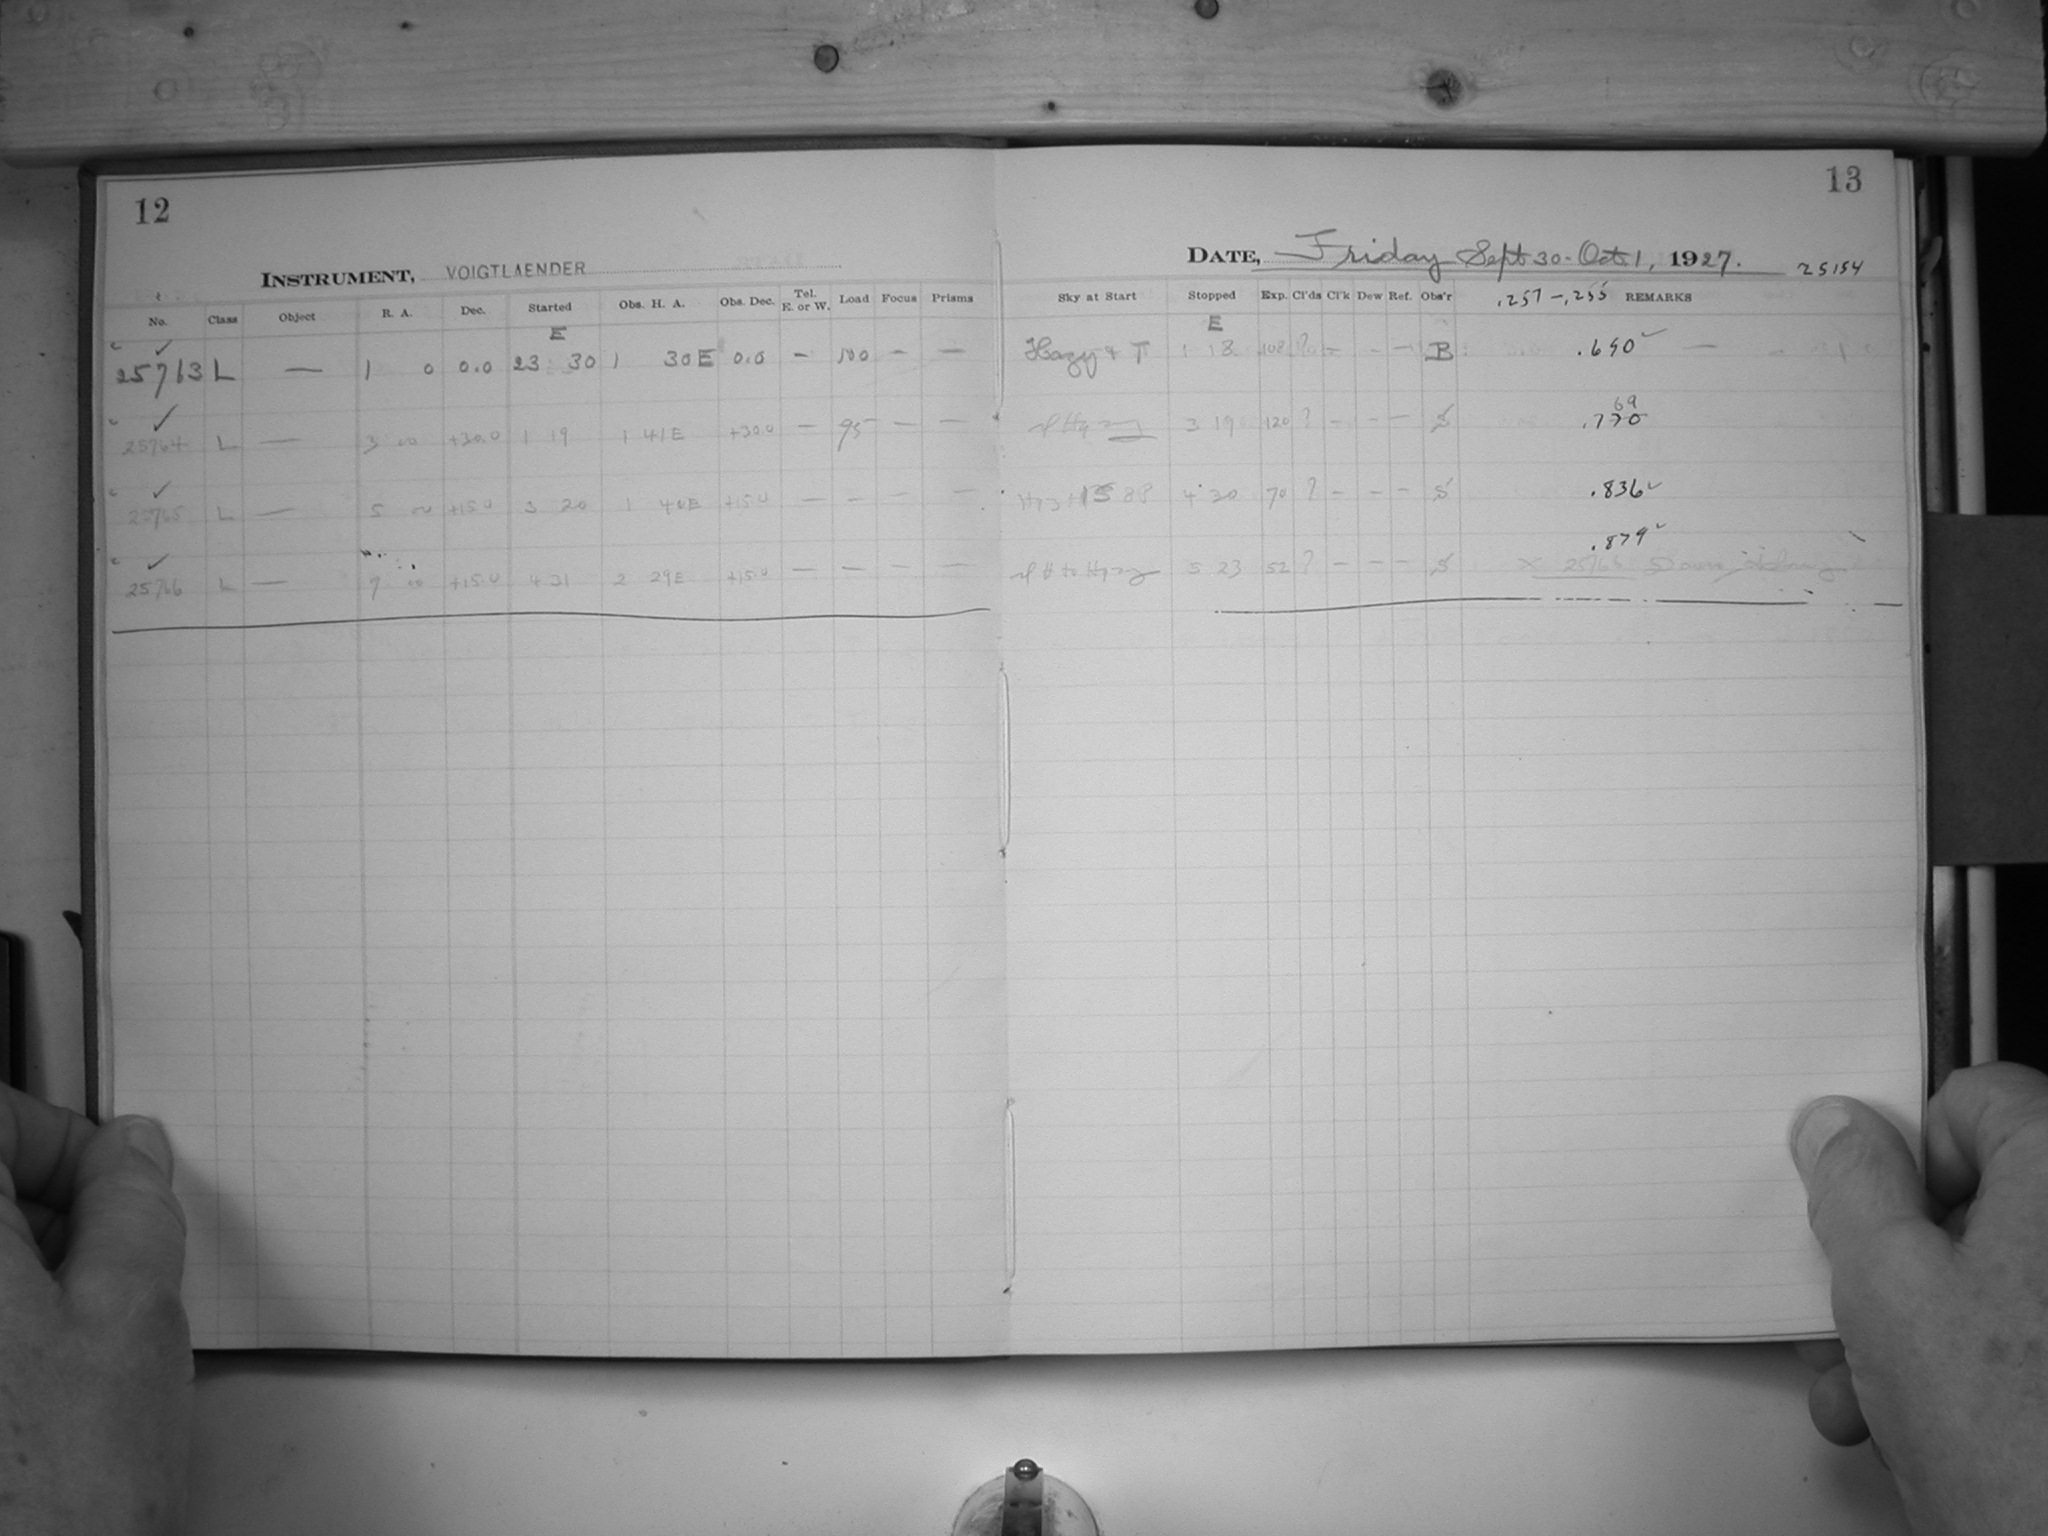 12
INSTRUMENT, VOIGTLAENDER
No. Class Object R. A. Dec. Started Obs. H. A. Obs. Dec. Tel. E. or W. Load Focus Prisms
E
25763 L — 1 0 0.0 23 30 1 30E 0.0 — 100 — —
25764 L — 3 00 +30.0 1 19 1 41E +30.0 — 95 — —
25765 L — 5 00 +15.0 3 20 1 40E +15.0 — — — —
25766 L — 7 00 +15.0 4 31 2 29E +15.0 — — — —
13
DATE, Friday Sept 30 - Oct. 1, 1927. 25154
Sky at Start Stopped Exp. Cl'ds Cl'k Dew Ref. Obs'r .257 - .255 REMARKS
E
Hazy & T 1 18 108 ? — — — B .690 —
3 19 120 ? — — — S .770 69
4 30 70 ? — — — S .836
5 23 52 ? — — — S .879
x 25765